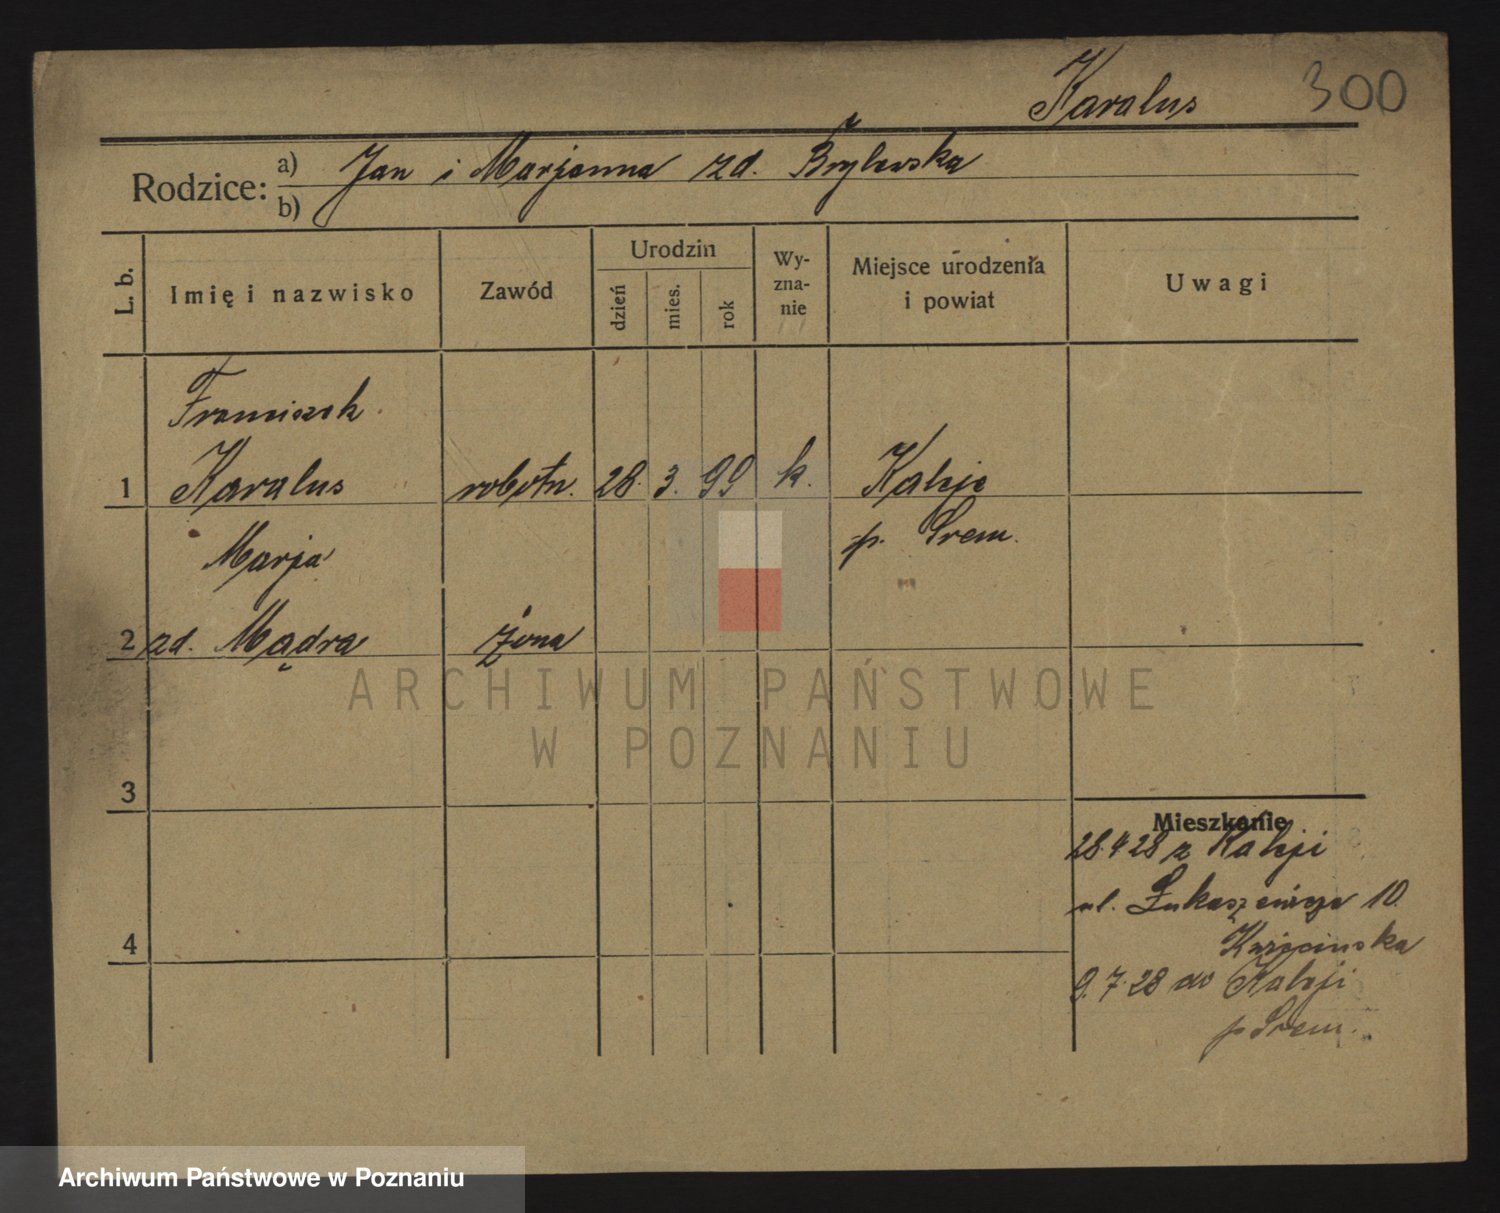 Karalus 300
Rodzice: a) Jan i Marjanna zd. Brylewska
b)
L. b. Imię i nazwisko Zawód Urodzin dzień mies. rok Wy-zna-nie Miejsce urodzenia i powiat Uwagi
Franciszek
1 Karalus robotn. 28. 3. 99 k. Kaleje
Marja p. Śrem.
2 zd. Mądra żona
3
Mieszkanie
28.4 28 z Kaleji
ul. Łukaszewicza 10
4
9.7.28 do Kaleji
p Śrem.
ARCHIWUM PAŃSTWOWE
W POZNANIU
Archiwum Państwowe w Poznaniu